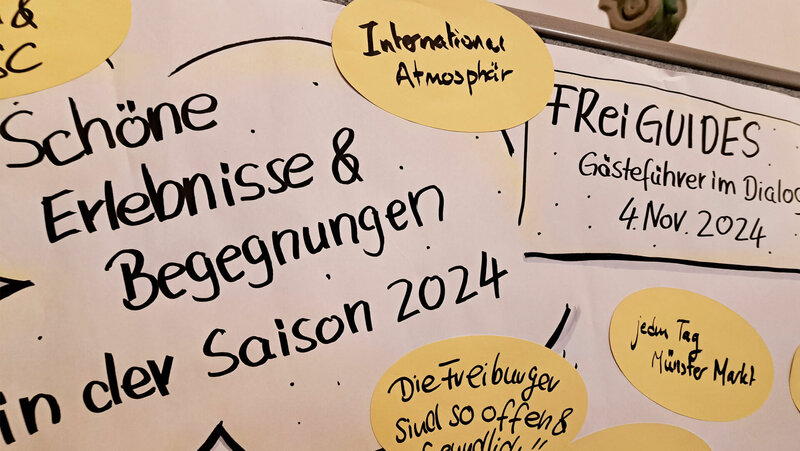 &
SC
International
Atmosphär
Schöne
Erlebnisse &
Begegnungen
in der Saison 2024
FREiGUIDES
Gästeführer im Dialog
4. Nov. 2024
jeden Tag
Münster Markt
Die Freiburger
sind so offen &